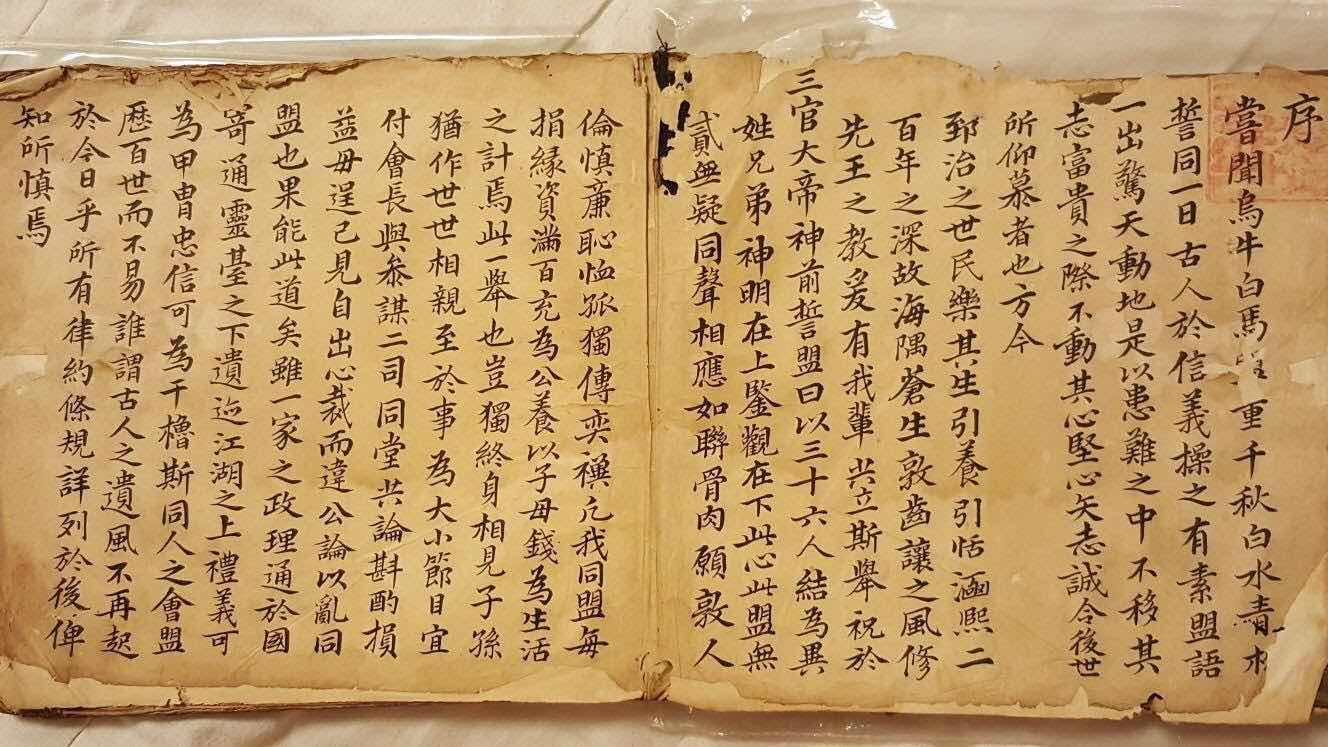 序
嘗聞烏牛白馬 重千秋白水青
誓同一日古人於信義操之有素盟語
一出驚天動地是以患難之中不移其
志富貴之際不動其心堅心矢志誠令後世
所仰慕者也方今
郅治之世民樂其生引養引恬涵熙二
百年之深故海隅蒼生敦齒讓之風修
先王之教爰有我輩共立斯舉祝於
三官大帝神前誓盟曰以三十六人結為異
姓兄弟神明在上鑒觀在下此心此盟無
貳無疑同聲相應如聯骨肉願敦人
倫慎廉恥恤孤獨傳奕禩凢我同盟每
捐緣資滿百充為公養以子母錢為生活
之計焉此一舉也豈獨終身相見子孫
猶作世世相親至於事為大小節目宜
付會長與叅謀二司同堂共論斟酌損
益毋逞己見自出心裁而違公論以亂同
盟也果能此道矣雖一家之政理通於國
寄通靈臺之下遺迹江湖之上禮義可
為甲冑忠信可為干櫓斯同人之會盟
歷百世而不易誰謂古人之遺風不再起
於今日乎所有律約條規詳列於後俾
知所慎焉